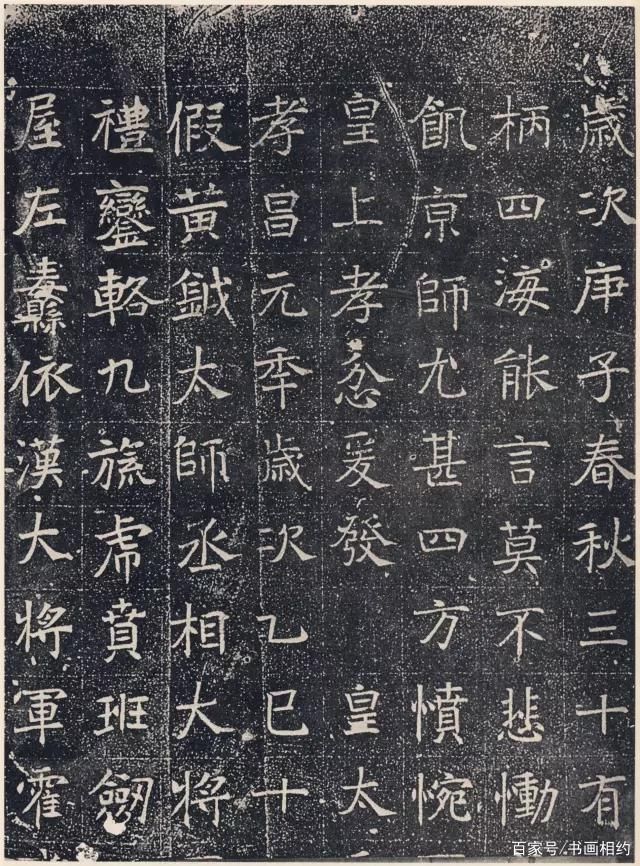 歲次庚子春秋三十有
柄四海能言莫不悲慟
飢京師尤甚四方憤惋
皇上孝忿爰發 皇太
孝昌元年歲次乙巳十
假黃鉞太師丞相大將
禮鑾輅九旒虎賁班劒
屋左纛依漢大將軍霍
百家号/书画相约